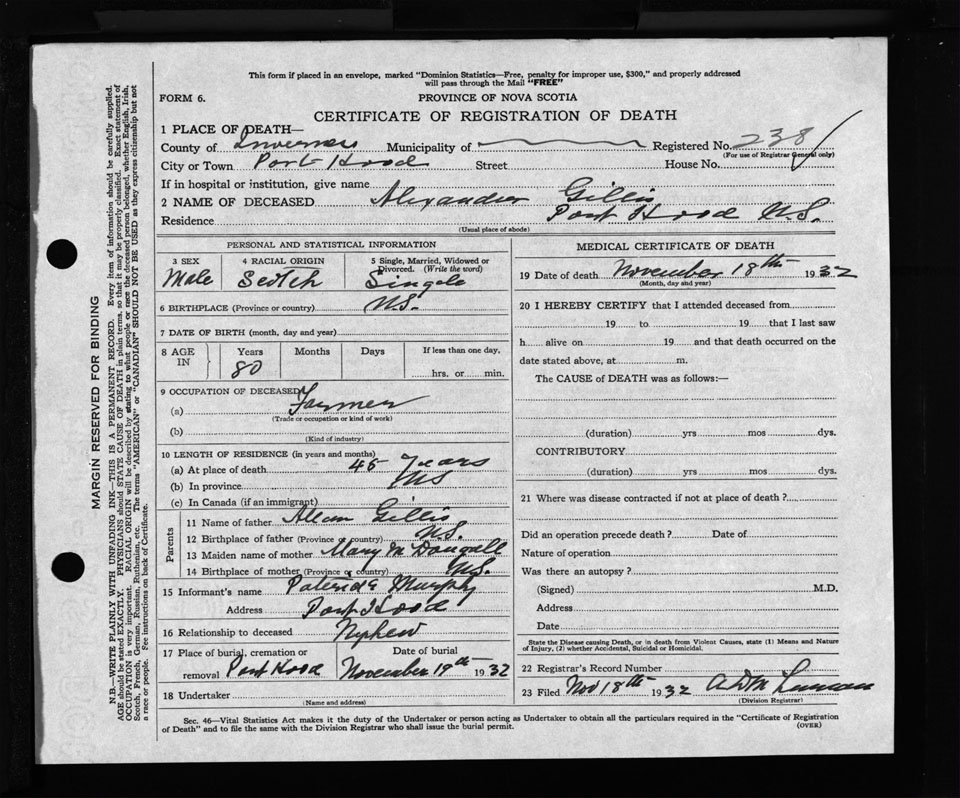 This form if placed in an envelope, marked "Dominion Statistics—Free, penalty for improper use, $300," and properly addressed
will pass through the Mail "FREE"
FORM 6.
PROVINCE OF NOVA SCOTIA
CERTIFICATE OF REGISTRATION OF DEATH
1 PLACE OF DEATH—
County of Inverness Municipality of Registered No. 238
(For use of Registrar General only)
City or Town Port Hood Street House No.
If in hospital or institution, give name
2 NAME OF DECEASED Alexander Gillis
Residence Port Hood N.S.
(Usual place of abode)
PERSONAL AND STATISTICAL INFORMATION
3 SEX 4 RACIAL ORIGIN 5 Single, Married, Widowed or
Divorced. (Write the word)
Male Scotch Single
6 BIRTHPLACE (Province or country) N.S.
7 DATE OF BIRTH (month, day and year)
8 AGE IN Years Months Days If less than one day,
80 hrs. or min.
9 OCCUPATION OF DECEASED
(a) Farmer
(Trade or occupation or kind of work)
(b)
(Kind of industry)
10 LENGTH OF RESIDENCE (in years and months)
(a) At place of death 45 Years
(b) In province NS
(c) In Canada (if an immigrant)
Parents
11 Name of father Allan Gillis
12 Birthplace of father (Province or country) N.S.
13 Maiden name of mother Mary McDougall
14 Birthplace of mother (Province or country) N.S.
15 Informant's name Murphy
Address Port Hood
16 Relationship to deceased Nyphew
17 Place of burial, cremation or Date of burial
removal Port Hood November 19th 1932
18 Undertaker
(Name and address)
MEDICAL CERTIFICATE OF DEATH
19 Date of death November 18th 1932
(Month, day and year)
20 I HEREBY CERTIFY that I attended deceased from
19 to 19 that I last saw
h alive on 19 and that death occurred on the
date stated above, at m.
The CAUSE of DEATH was as follows:—
(duration) yrs mos dys.
CONTRIBUTORY
(duration) yrs. mos. dys.
21 Where was disease contracted if not at place of death?
Did an operation precede death? Date of
Nature of operation
Was there an autopsy?
(Signed) M.D.
Address
Date
State the Disease causing Death, or in death from Violent Causes, state (1) Means and Nature
of Injury, (2) whether Accidental, Suicidal or Homicidal.
22 Registrar's Record Number
23 Filed Nov 18th 1932
(Division Registrar)
Sec. 46—Vital Statistics Act makes it the duty of the Undertaker or person acting as Undertaker to obtain all the particulars required in the "Certificate of Registration
of Death" and to file the same with the Division Registrar who shall issue the burial permit.
(OVER)
MARGIN RESERVED FOR BINDING
N.B.—WRITE PLAINLY WITH UNFADING INK—THIS IS A PERMANENT RECORD. Every item of information should be carefully supplied.
AGE should be stated EXACTLY. PHYSICIANS should STATE CAUSE OF DEATH in plain terms, so that it may be properly classified. Exact statement of
OCCUPATION is very important. RACIAL ORIGIN will be described by stating to what people or race the deceased person belonged, whether English, Irish,
Scotch, French, German, Russian, Ruthenian, etc. The terms "AMERICAN" or "CANADIAN" SHOULD NOT BE USED as they express citizenship but not
a race or people. See instructions on back of Certificate.